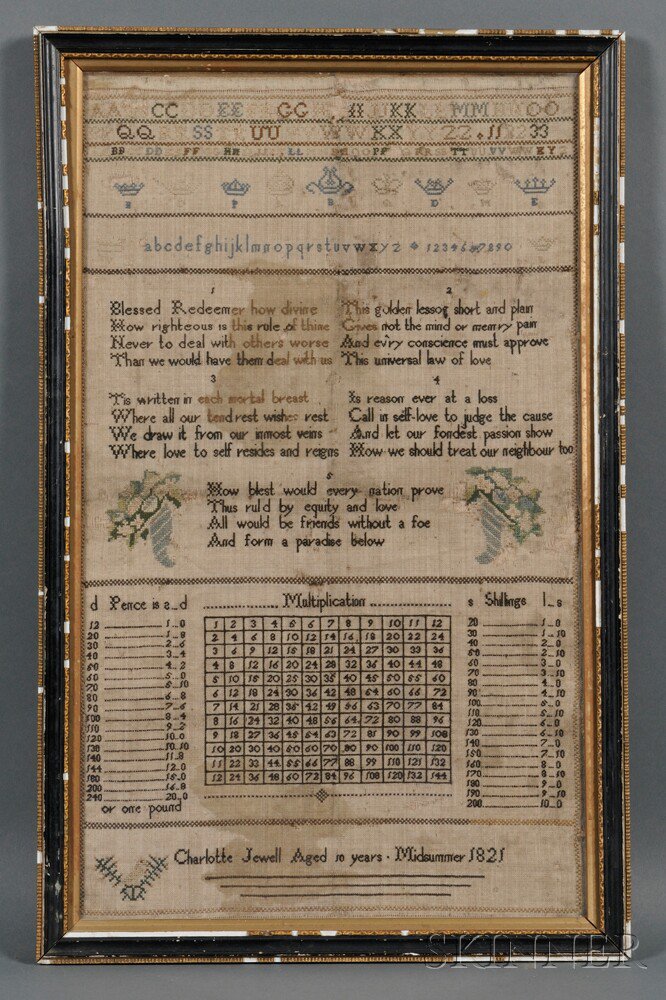 CC EE GG II KK MM OO
QQ SS UU WW XX ZZ 11 33
BB DD FF HH LL PP TT VV
E P B D E
abcdefghijklmnopqrstuvwxyz 1234567890
1
Blessed Redeemer how divine
How righteous is this rule of thine
Never to deal with others worse
Than we would have them deal with us
2
This golden lesson short and plain
Gives not the mind or memry pain
And ev'ry conscience must approve
This universal law of love
3
Tis written in each mortal breast
Where all our tendrest wishes rest
We draw it from our inmost veins
Where love to self resides and reigns
4
Is reason ever at a loss
Call in self-love to judge the cause
And let our fondest passion show
How we should treat our neighbour too
5
How blest would every nation prove
Thus rul'd by equity and love
All would be friends without a foe
And form a paradise below
d Pence is s_d
12 1_0
20 1_8
30 2_6
40 3_4
50 4_2
60 5_0
70 5_10
80 6_8
90 7_6
100 8_4
110 9_2
120 10_0
130 10_10
140 11_8
144 12_0
180 15_0
200 16_8
240 20_0
or one pound
Multiplication
1 2 3 4 5 6 7 8 9 10 11 12
2 4 6 8 10 12 14 16 18 20 22 24
3 6 9 12 15 18 21 24 27 30 33 36
4 8 12 16 20 24 28 32 36 40 44 48
5 10 15 20 25 30 35 40 45 50 55 60
6 12 18 24 30 36 42 48 54 60 66 72
7 14 21 28 35 42 49 56 63 70 77 84
8 16 24 32 40 48 56 64 72 80 88 96
9 18 27 36 45 54 63 72 81 90 99 108
10 20 30 40 50 60 70 80 90 100 110 120
11 22 33 44 55 66 77 88 99 110 121 132
12 24 36 48 60 72 84 96 108 120 132 144
s Shillings l_s
20 1_0
30 1_10
40 2_0
50 2_10
60 3_0
70 3_10
80 4_0
90 4_10
100 5_0
110 5_10
120 6_0
130 6_10
140 7_0
150 7_10
160 8_0
170 8_10
180 9_0
190 9_10
200 10_0
Charlotte Jewell Aged 10 years . Midsummer 1821
SKINNER